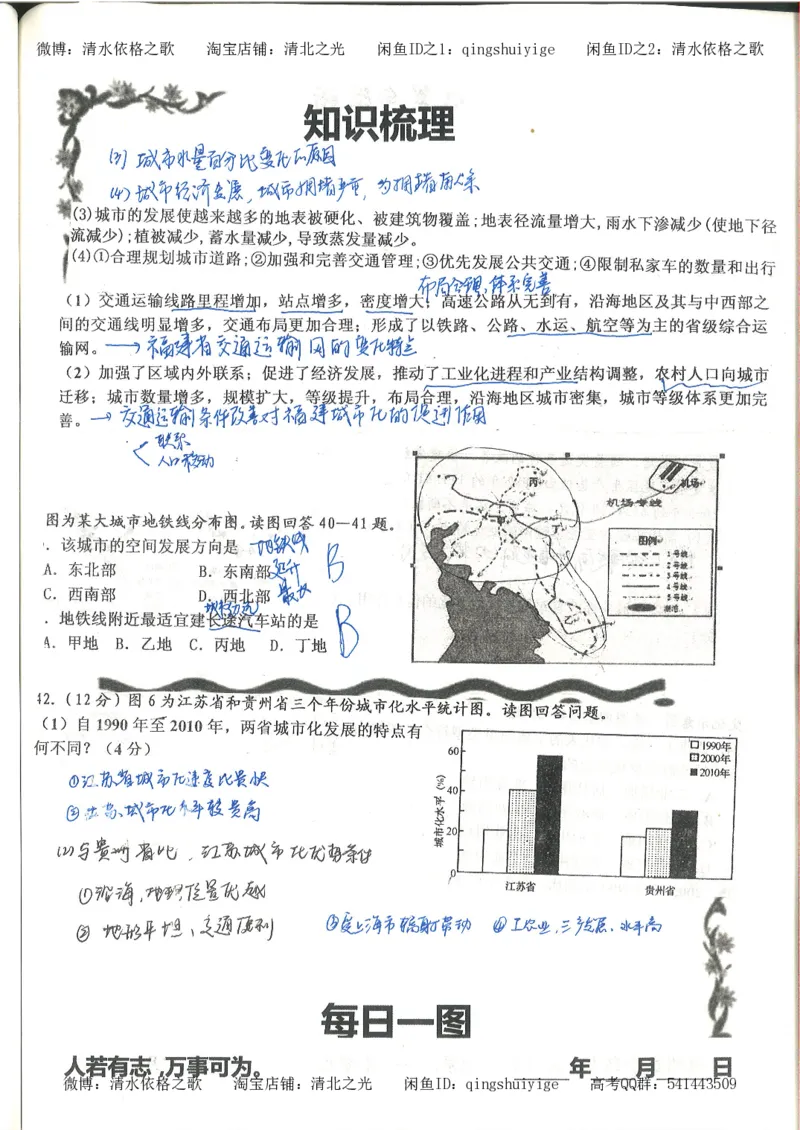 微博：清水依格之歌 淘宝店铺：清北之光 闲鱼ID之1：qingshuiyige 闲鱼ID之2：清水依格之歌
知识梳理
(3) 城市水量百分比变化的原因
(4) 城市经济发展，城市拥堵
(3)城市的发展使越来越多的地表被硬化、被建筑物覆盖;地表径流量增大,雨水下渗减少(使地下径
流减少);植被减少,蓄水量减少,导致蒸发量减少。
(4)①合理规划城市道路;②加强和完善交通管理;③优先发展公共交通;④限制私家车的数量和出行
布局合理，体系完善
（1）交通运输线路里程增加，站点增多，密度增大；高速公路从无到有，沿海地区及其与中西部之
间的交通线明显增多，交通布局更加合理；形成了以铁路、公路、水运、航空等为主的省级综合运
输网。→福建省交通运输网的变化特点
（2）加强了区域内外联系；促进了经济发展，推动了工业化进程和产业结构调整，农村人口向城市
迁移；城市数量增多，规模扩大，等级提升，布局合理，沿海地区城市密集，城市等级体系更加完
善。→交通运输条件改善对福建城市化的促进作用
联系
人口移动
丙
机场
机场专线
丁
图例
1号线
2号线
3号线
4号线
5号线
湖泊
图为某大城市地铁线分布图。读图回答40—41题。
．该城市的空间发展方向是 地铁线
A．东北部 B．东南部 延伸 B
C．西南部 D．西北部 最长
城market边远
．地铁线附近最适宜建长途汽车站的是 B
A．甲地 B．乙地 C．丙地 D．丁地
42．（12分）图6为江苏省和贵州省三个年份城市化水平统计图。读图回答问题。
（1）自1990年至2010年，两省城市化发展的特点有
何不同？（4分）
①江苏省城市化速度比贵快
②江苏城市化水平较贵高
(2)与贵州省比，江苏城市化优势条件
①沿海，地理位置优越
②地形平坦、交通便利
③受上海市辐射带动 ④工农业，三产发展，水平高
城市化水平(%)
60
40
20
0
1990年
2000年
2010年
江苏省
贵州省
每日一图
人若有志，万事可为。 年 月 日
微博：清水依格之歌 淘宝店铺：清北之光 闲鱼ID：qingshuiyige 高考QQ群：541443509